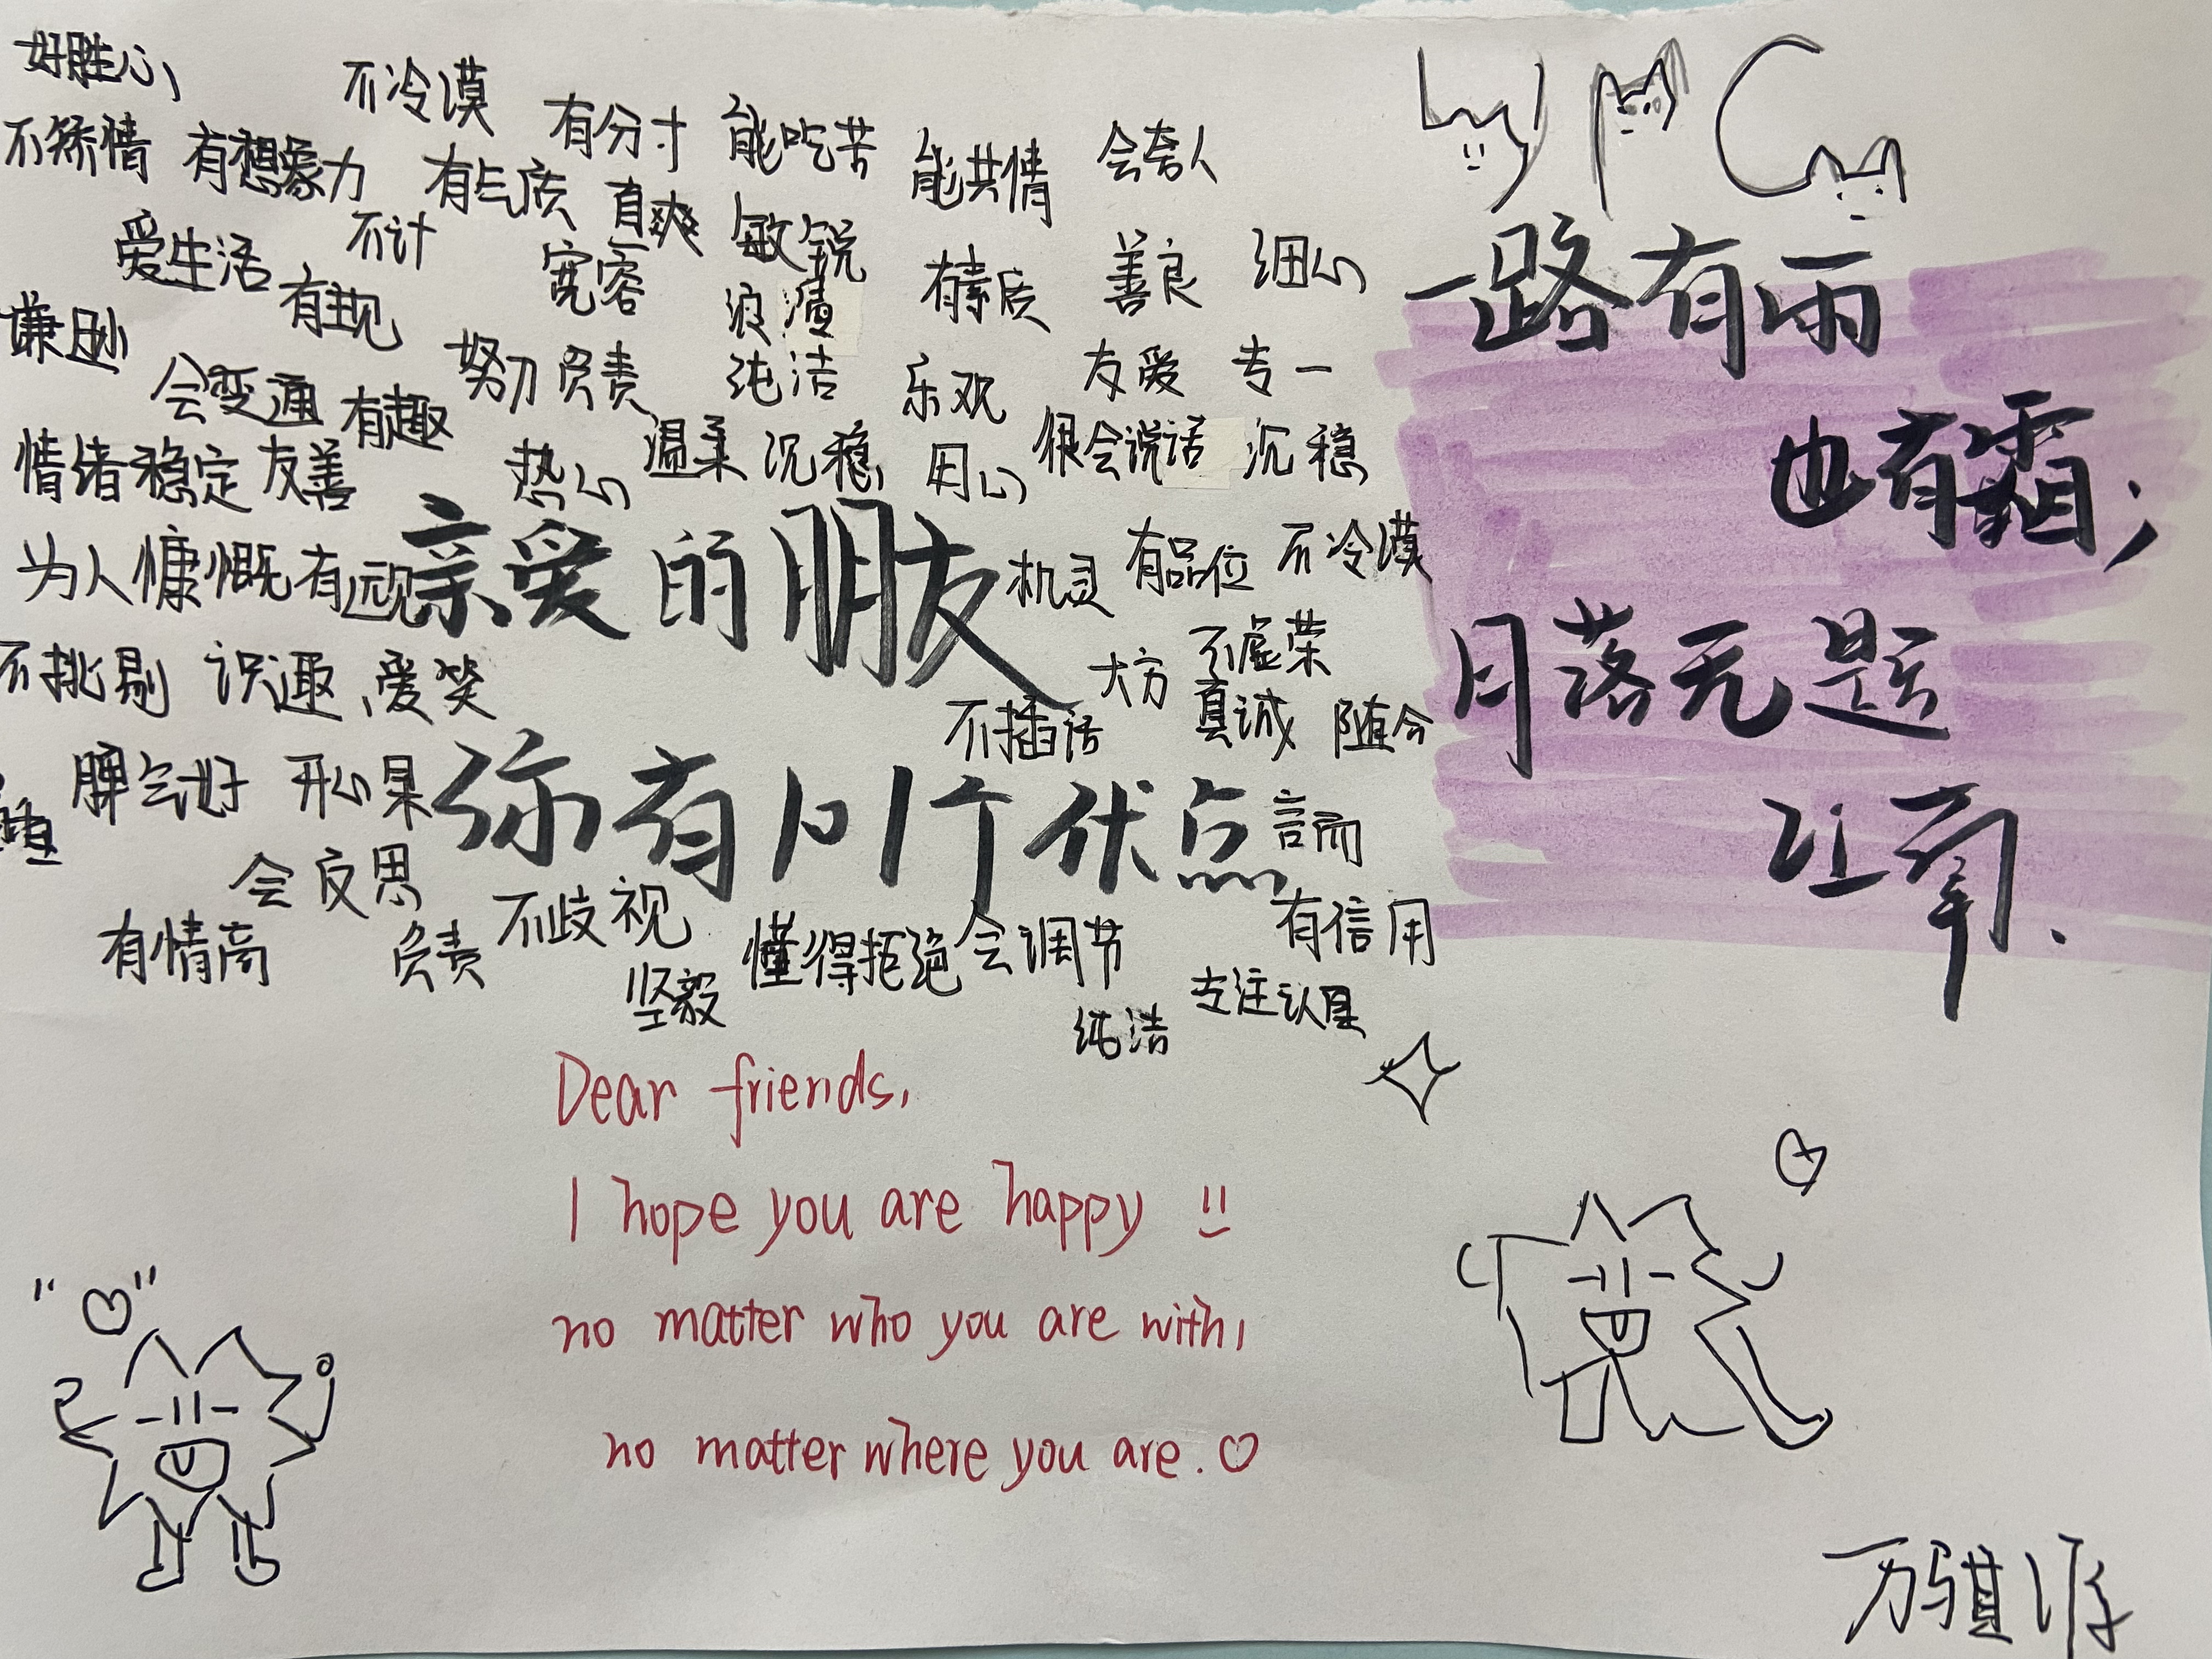 好胜心，
不冷漠
有分寸 能吃苦 能共情 会夸人
不矫情 有想象力 有气质 直爽 敏锐
爱生活 不计 宽容 浪漫 有素质 善良 细心
有主见
谦逊 努力 负责 纯洁 乐观 友爱 专一
会变通 有趣
情绪稳定 友善 热心 温柔 沉稳 用心 很会说话 沉稳
为人慷慨 有远视 机灵 有品位 不冷漠
亲爱的朋友
不挑剔 识趣、爱笑 大方 不虚荣
不插话 真诚 随分
脾气好 开心果
你有101个优点
会反思
有情商 负责 不歧视 懂得拒绝 会调节 有信用
坚毅 纯洁 专注认真
Dear friends,
I hope you are happy
no matter who you are with,
no matter where you are.
一路有雨
也有霜；
月落无题
让.